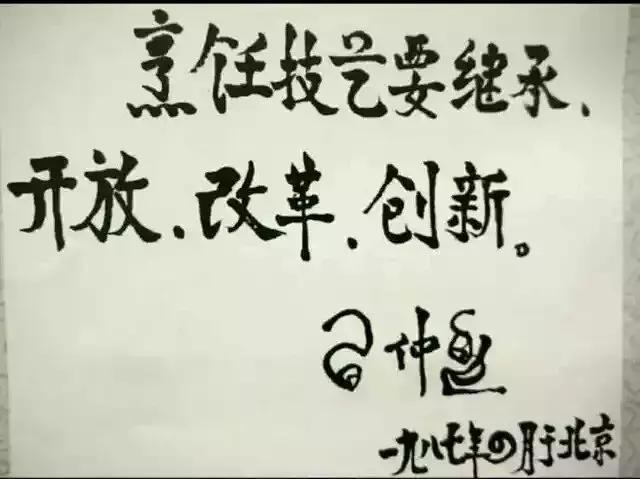 烹饪技艺要继承、
开放、改革、创新。
仲
一九八七年四月于北京